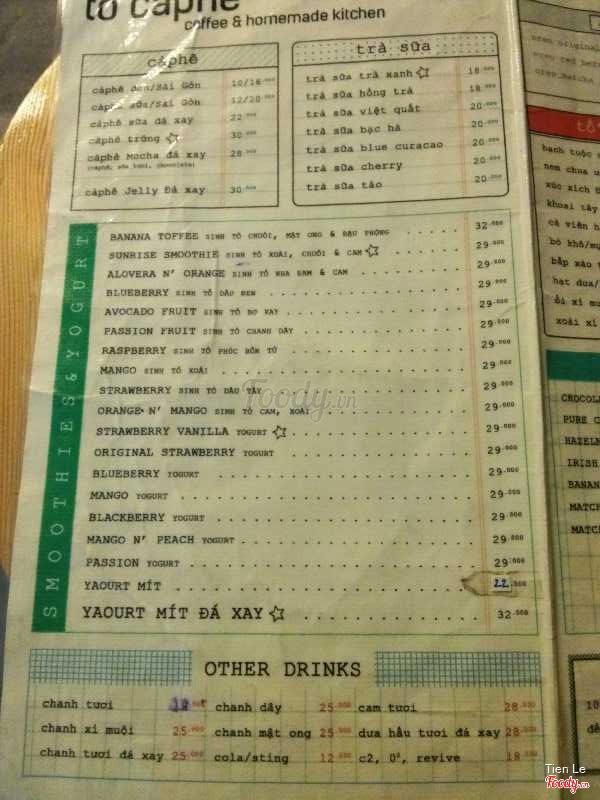 tổ càphê
coffee & homemade kitchen
càphê
càphê đen/Sài Gòn 10/16.000
càphê sữa/Sài Gòn 12/20.000
càphê sữa đá xay 22.000
càphê trứng ☆ 30.000
càphê Mocha đá xay 28.000
(caphê, sữa tươi, chocolate)
càphê Jelly Đá xay 30.000
trà sữa
trà sữa trà xanh ☆ 18.000
trà sữa hồng trà 18.000
trà sữa việt quất 20.000
trà sữa bạc hà 20.000
trà sữa blue curacao 20.000
trà sữa cherry 20.000
trà sữa táo 20.000
SMOOTHIES & YOGURT
BANANA TOFFEE SINH TỐ CHUỐI, MẬT ONG & ĐẬU PHỘNG 32.000
SUNRISE SMOOTHIE SINH TỐ XOÀI, CHUỐI & CAM ☆ 29.000
ALOVERA N' ORANGE SINH TỐ NHA ĐAM & CAM 29.000
BLUEBERRY SINH TỐ DÂU ĐEN 29.000
AVOCADO FRUIT SINH TỐ BƠ XAY 29.000
PASSION FRUIT SINH TỐ CHANH DÂY 29.000
RASPBERRY SINH TỐ PHÚC BỒN TỬ 29.000
MANGO SINH TỐ XOÀI 29.000
STRAWBERRY SINH TỐ DÂU TÂY 29.000
ORANGE N' MANGO SINH TỐ CAM, XOÀI 29.000
STRAWBERRY VANILLA YOGURT ☆ 29.000
ORIGINAL STRAWBERRY YOGURT 29.000
BLUEBERRY YOGURT 29.000
MANGO YOGURT 29.000
BLACKBERRY YOGURT 29.000
MANGO N' PEACH YOGURT 29.000
PASSION YOGURT 29.000
YAOURT MÍT 22.000
YAOURT MÍT ĐÁ XAY ☆ 32.000
OTHER DRINKS
chanh tươi chanh dây 25.000 cam tươi 28.000
chanh xí muội 25.000 chanh mật ong 25.000 dưa hấu tươi đá xay 28.000
chanh tươi đá xay 25.000 cola/sting 12.000 c2, 0°, revive 18.000
bạch tuộc
nem chua
xúc xích
khoai tây
cá viên
bò khô/
bắp xào
hạt dưa/
ổi xí
xoài xí
PURE
IRISH
BANAN
MATCH
MATC
Foody.vn
Tien Le
Foody.vn